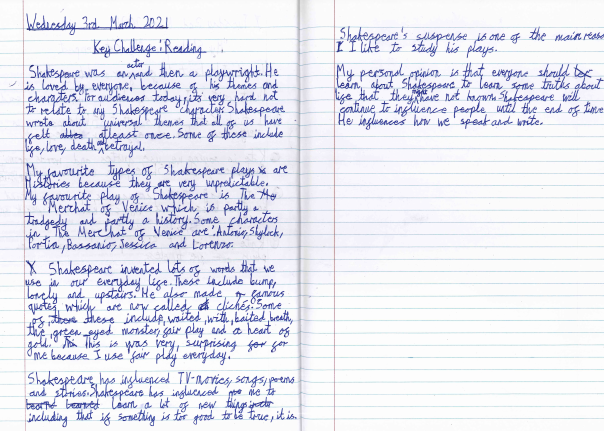 Wednesday 3rd March 2021
Key Challenge: Reading
Shakespeare was an actor and then a playwright. He
is loved by everyone, because of his themes and
characters. For audiences today, its very hard not
to relate to my Shakespeare character. Shakespeare
wrote about universal themes that all of us have
felt atleast once. Some of these include
life, love, death and betrayal.
My favourite types of Shakespeare plays are
Histories because they are very unpredictable.
My favourite play of Shakespeare is The
Merchat of Venice which is partly a
tradgedy and partly a history. Some characters
in The Merchat of Venice are: Antonio, Shylock,
Portia, Bassanio, Jessica and Lorenzo.
Shakespeare invented lots of words that we
use in our everyday life. These include bump,
lonely and upstairs. He also made famous
quotes which are now called clichés. Some
of these include, waited, with, baited breath,
the green eyed monster, fair play and a heart of
gold. This is was very, surprising for
me because I use fair play everyday.
Shakespeare has influenced TV-movies, songs, poems
and stories. Shakespeare has influenced me to
learn a lot of new things
including that if something is too good to be true, it is.
Shakespeare's suspense is one of the main reaso
I like to study his plays.
My personal opinion is that everyone should
learn, about Shakespeare to learn some truths about
life that they might have not known. Shakespeare will
continue to influence people until the end of time.
He influences how we speak and write.